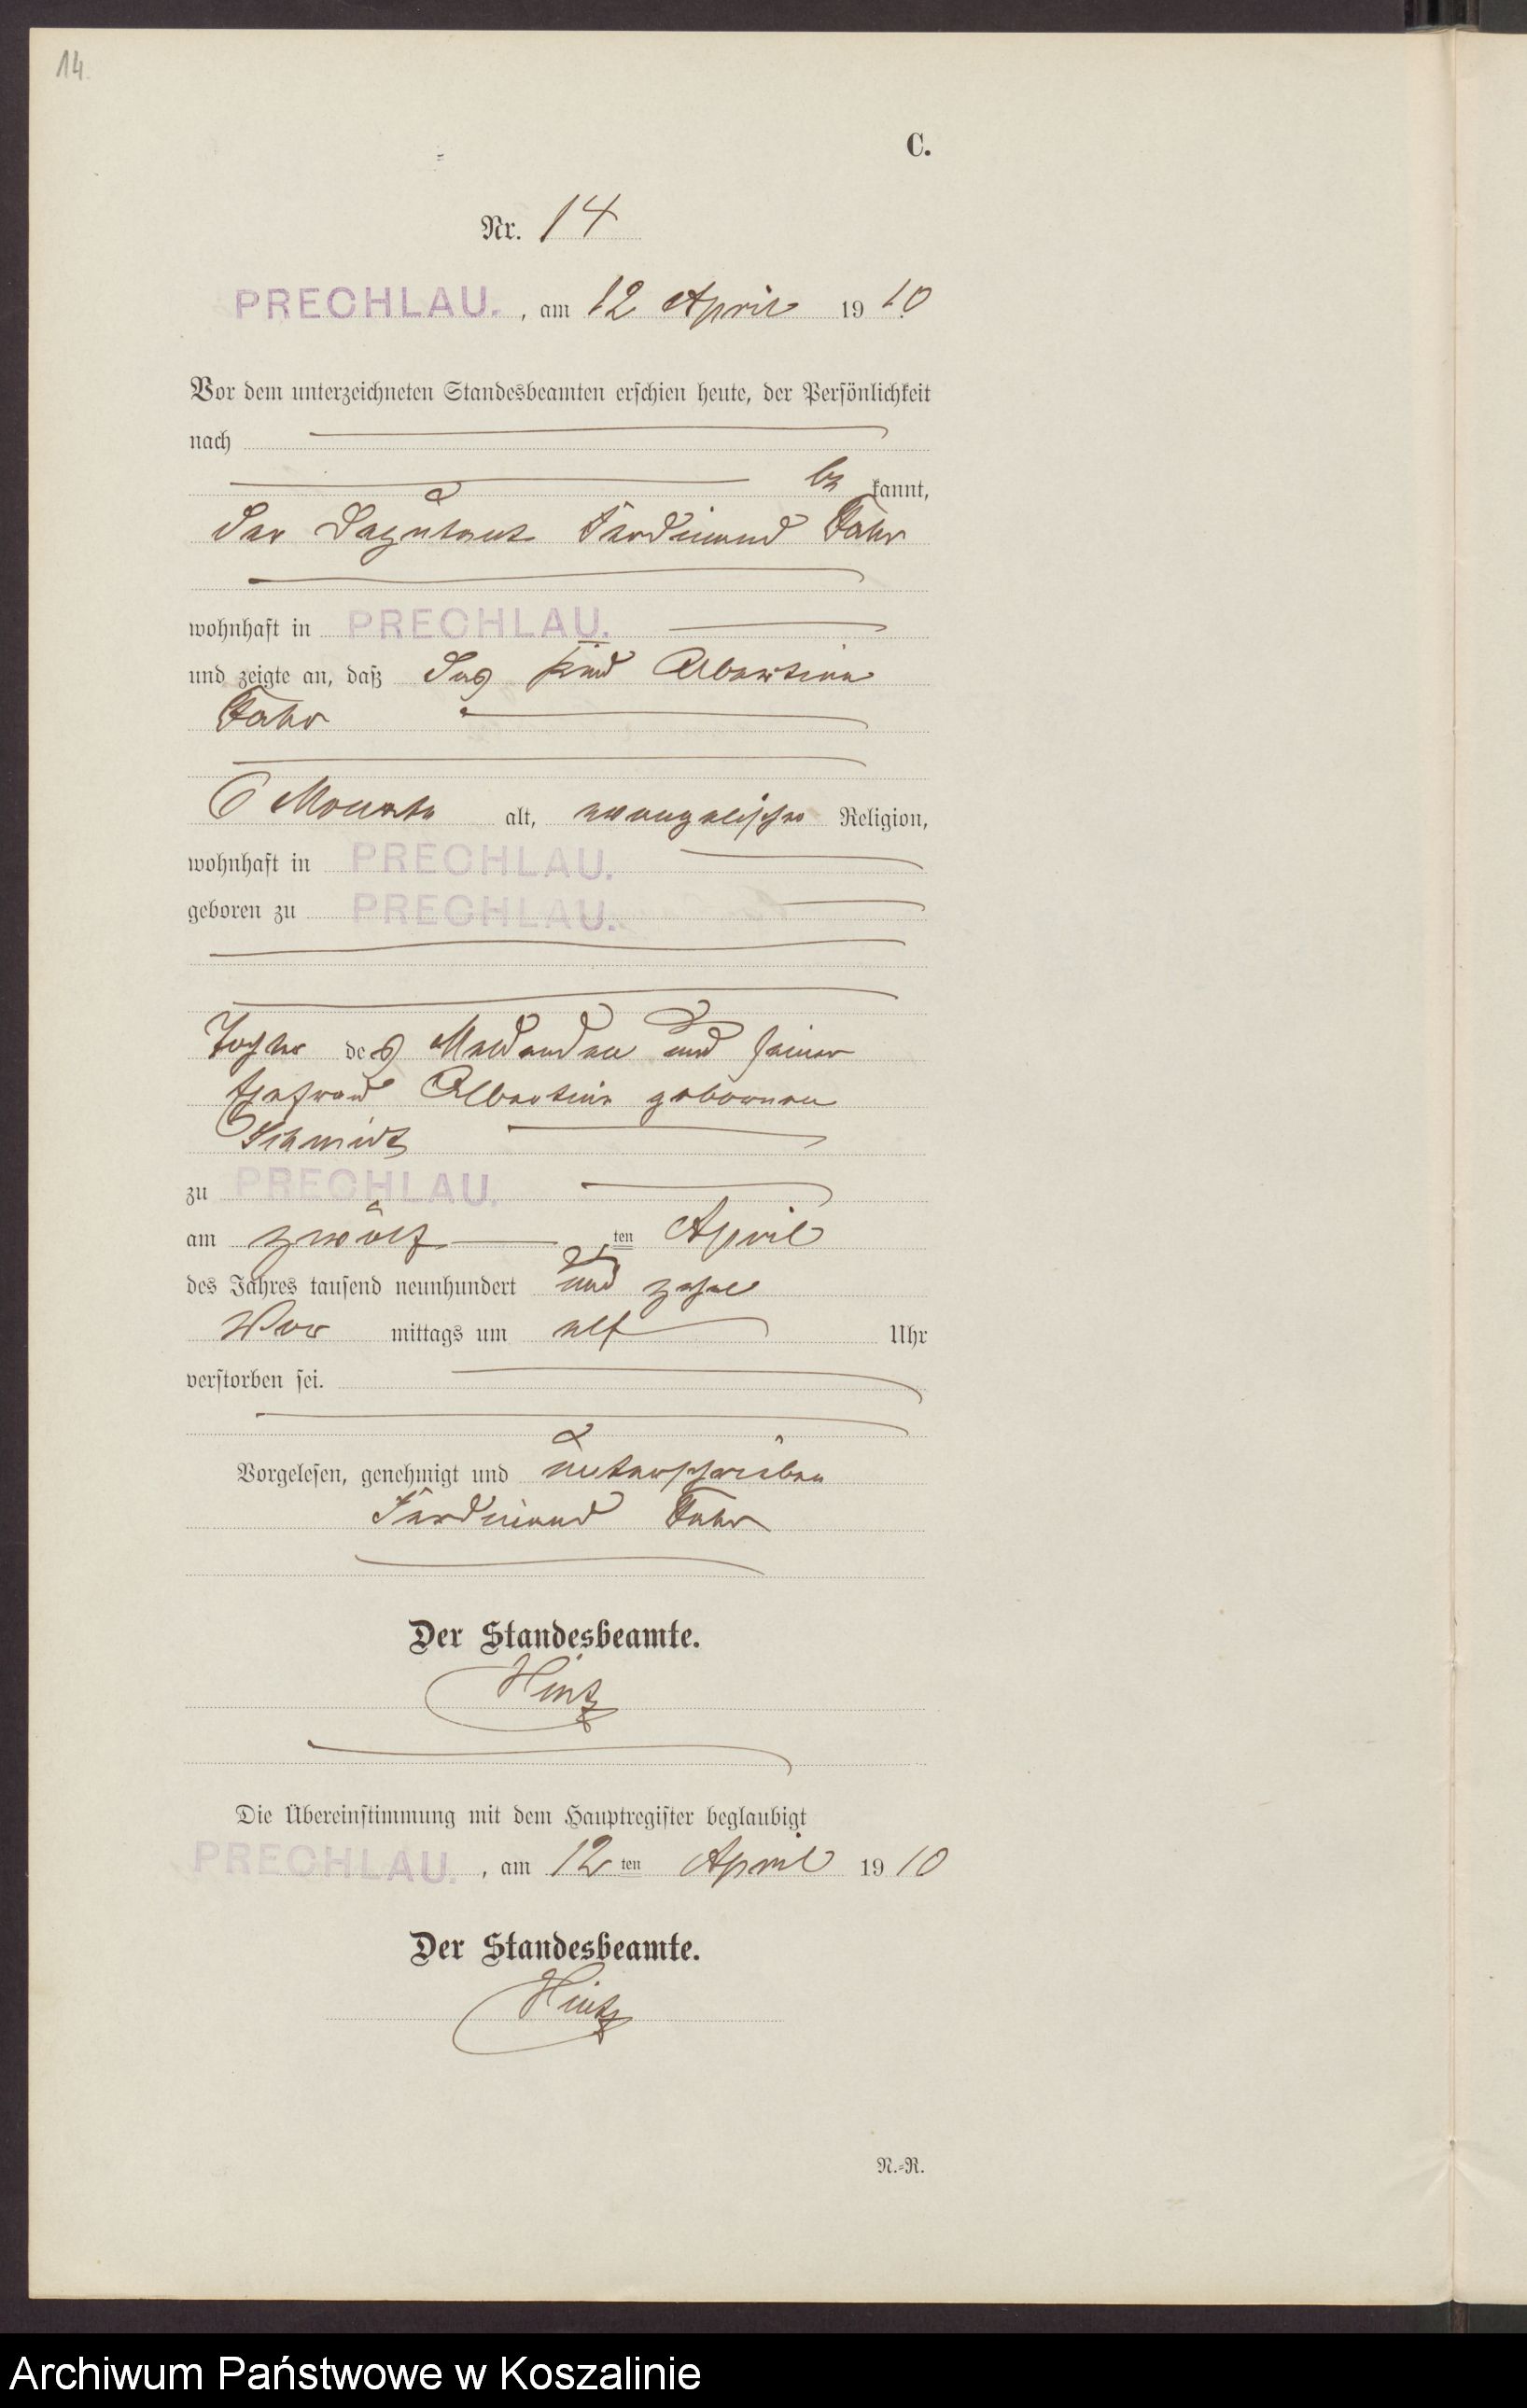 14.
C.
Nr. 14
PRECHLAU. , am 12 April 1910
Vor dem unterzeichneten Standesbeamten erschien heute, der Persönlichkeit
nach
be kannt,
der Ferdinand Fahr
wohnhaft in PRECHLAU.
und zeigte an, daß das Kind Albertine
Fahr
6 Monate alt, evangelischer Religion,
wohnhaft in PRECHLAU.
geboren zu PRECHLAU.
Tochter des Meldenden und seiner
Ehefrau Albertine geborenen
Schmidt
zu PRECHLAU.
am zwölf ten April
des Jahres tausend neunhundert und zehn
Vor mittags um elf Uhr
verstorben sei.
Vorgelesen, genehmigt und unterschrieben
Ferdinand Fahr
Der Standesbeamte.
Hintz
Die Übereinstimmung mit dem Hauptregister beglaubigt
PRECHLAU. , am 12 ten April 1910
Der Standesbeamte.
Hintz
N.=R.
Archiwum Państwowe w Koszalinie